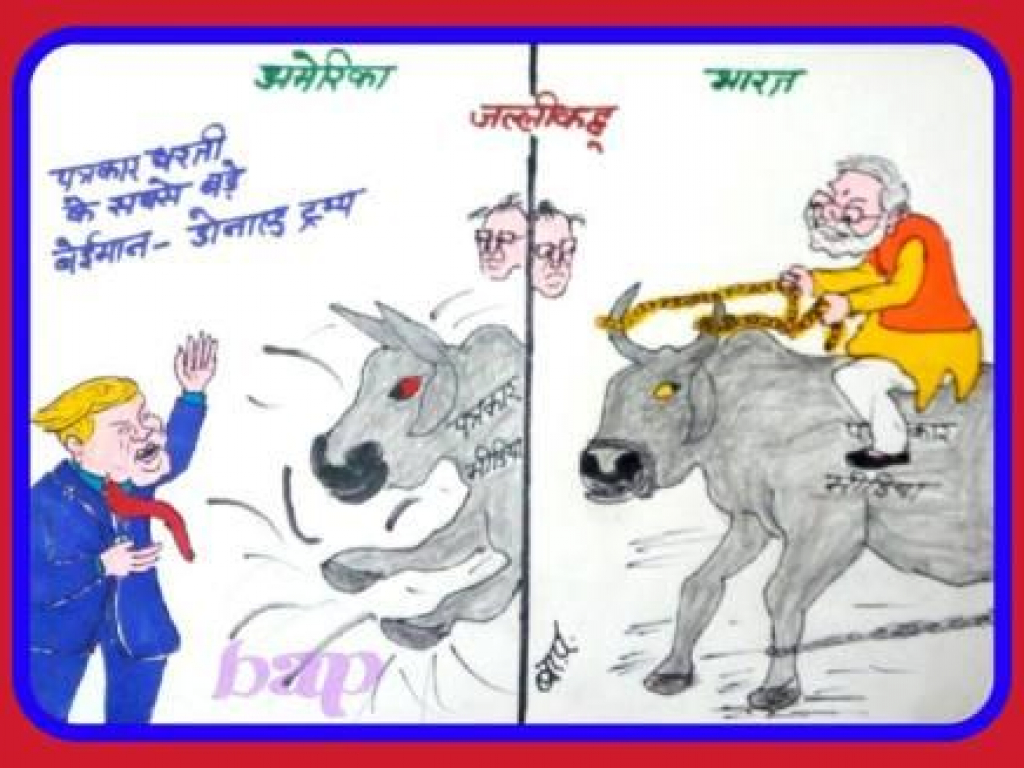 अमेरिका
भारत
जल्लीकट्टू
पत्रकार धरती
के सबसे बड़े
बेईमान- डोनाल्ड ट्रम्प
पत्रकार
मीडिया
प कार
मीडिया
बाप
bap